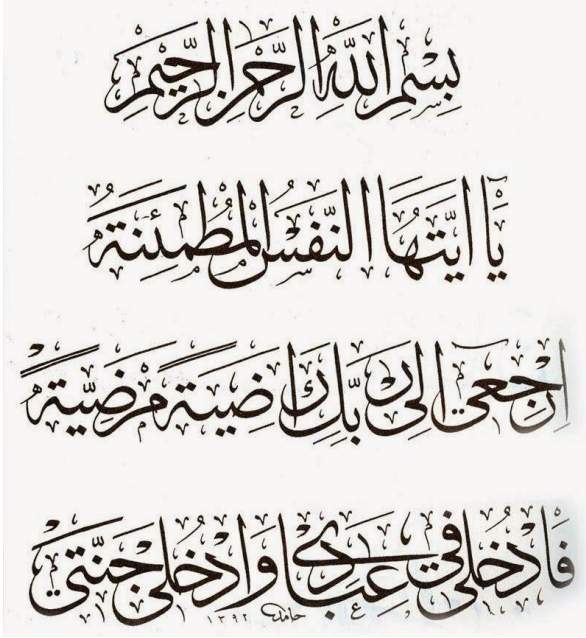 بِسْمِ اللهِ الرَّحْمٰنِ الرَّحِيْمِ
يَا اَيَّتُهَا النَّفْسُ الْمُطْمَئِنَّةُ
اِرْجِعِى اِلٰى رَبِّكِ رَاضِيَةً مَرْضِيَّةً
فَادْخُلِى فِى عِبَادِى وَادْخُلِى جَنَّتِى
حامد ١٣٩٢